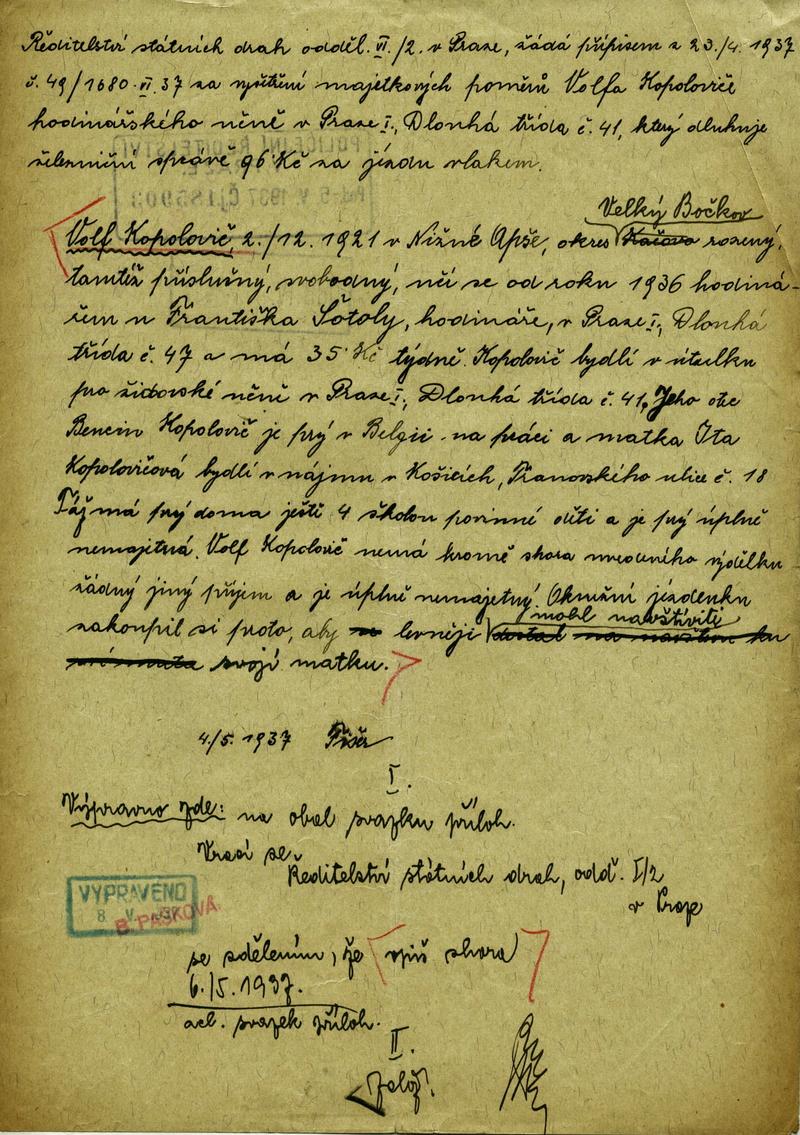 Ředitelství státních drah odděl. VI./2. v Praze, žádá přípisem z 23./4. 1937
č. 49/1680-VI.37 za vyšetření majetkových poměrů Volfa Kopoloviče
hodinářského učně v Praze I., Dlouhá třída č. 41, který dluhuje
železniční správě 96 Kč za jízdu vlakem.
Velký Bočkov
Volf Kopolovič, 2./12. 1921 v Nižné Apše, okres rozený,
tamtéž příslušný, svobodný, učí se od roku 1936 hodiná-
řem u Františka Šotoly, hodináře, v Praze I., Dlouhá
třída č. 47 a má 35 Kč týdně. Kopolovič bydlí v útulku
pro židovské učně v Praze I., Dlouhá třída č. 41. Jeho otec
Bencin Kopolovič je prý v Belgii na práci a matka Ita
Kopolovičová bydlí v nájmu v Košicích, ulice č. 18
Táž má prý doma ještě 4 školou povinné děti a je prý úplně
nemajetná. Volf Kopolovič nemá kromě shora uvedeného výdělku
žádný jiný příjem a je úplně nemajetný. Okružní jízdenku
mohl navštíviti
zakoupil si proto, aby levněji
svoji matku.
4./5. 1937
I.
Výpravno zde: na obal svazku příloh.
Vrací se
Ředitelství státních drah, odd. I/2
v Praze
VYPRAVENO
8. V. 1937
B. PAŠKOVÁ
se sdělením, že (opis shora)
6./5. 1937.
acl. svazek příloh.
II.
Založ.